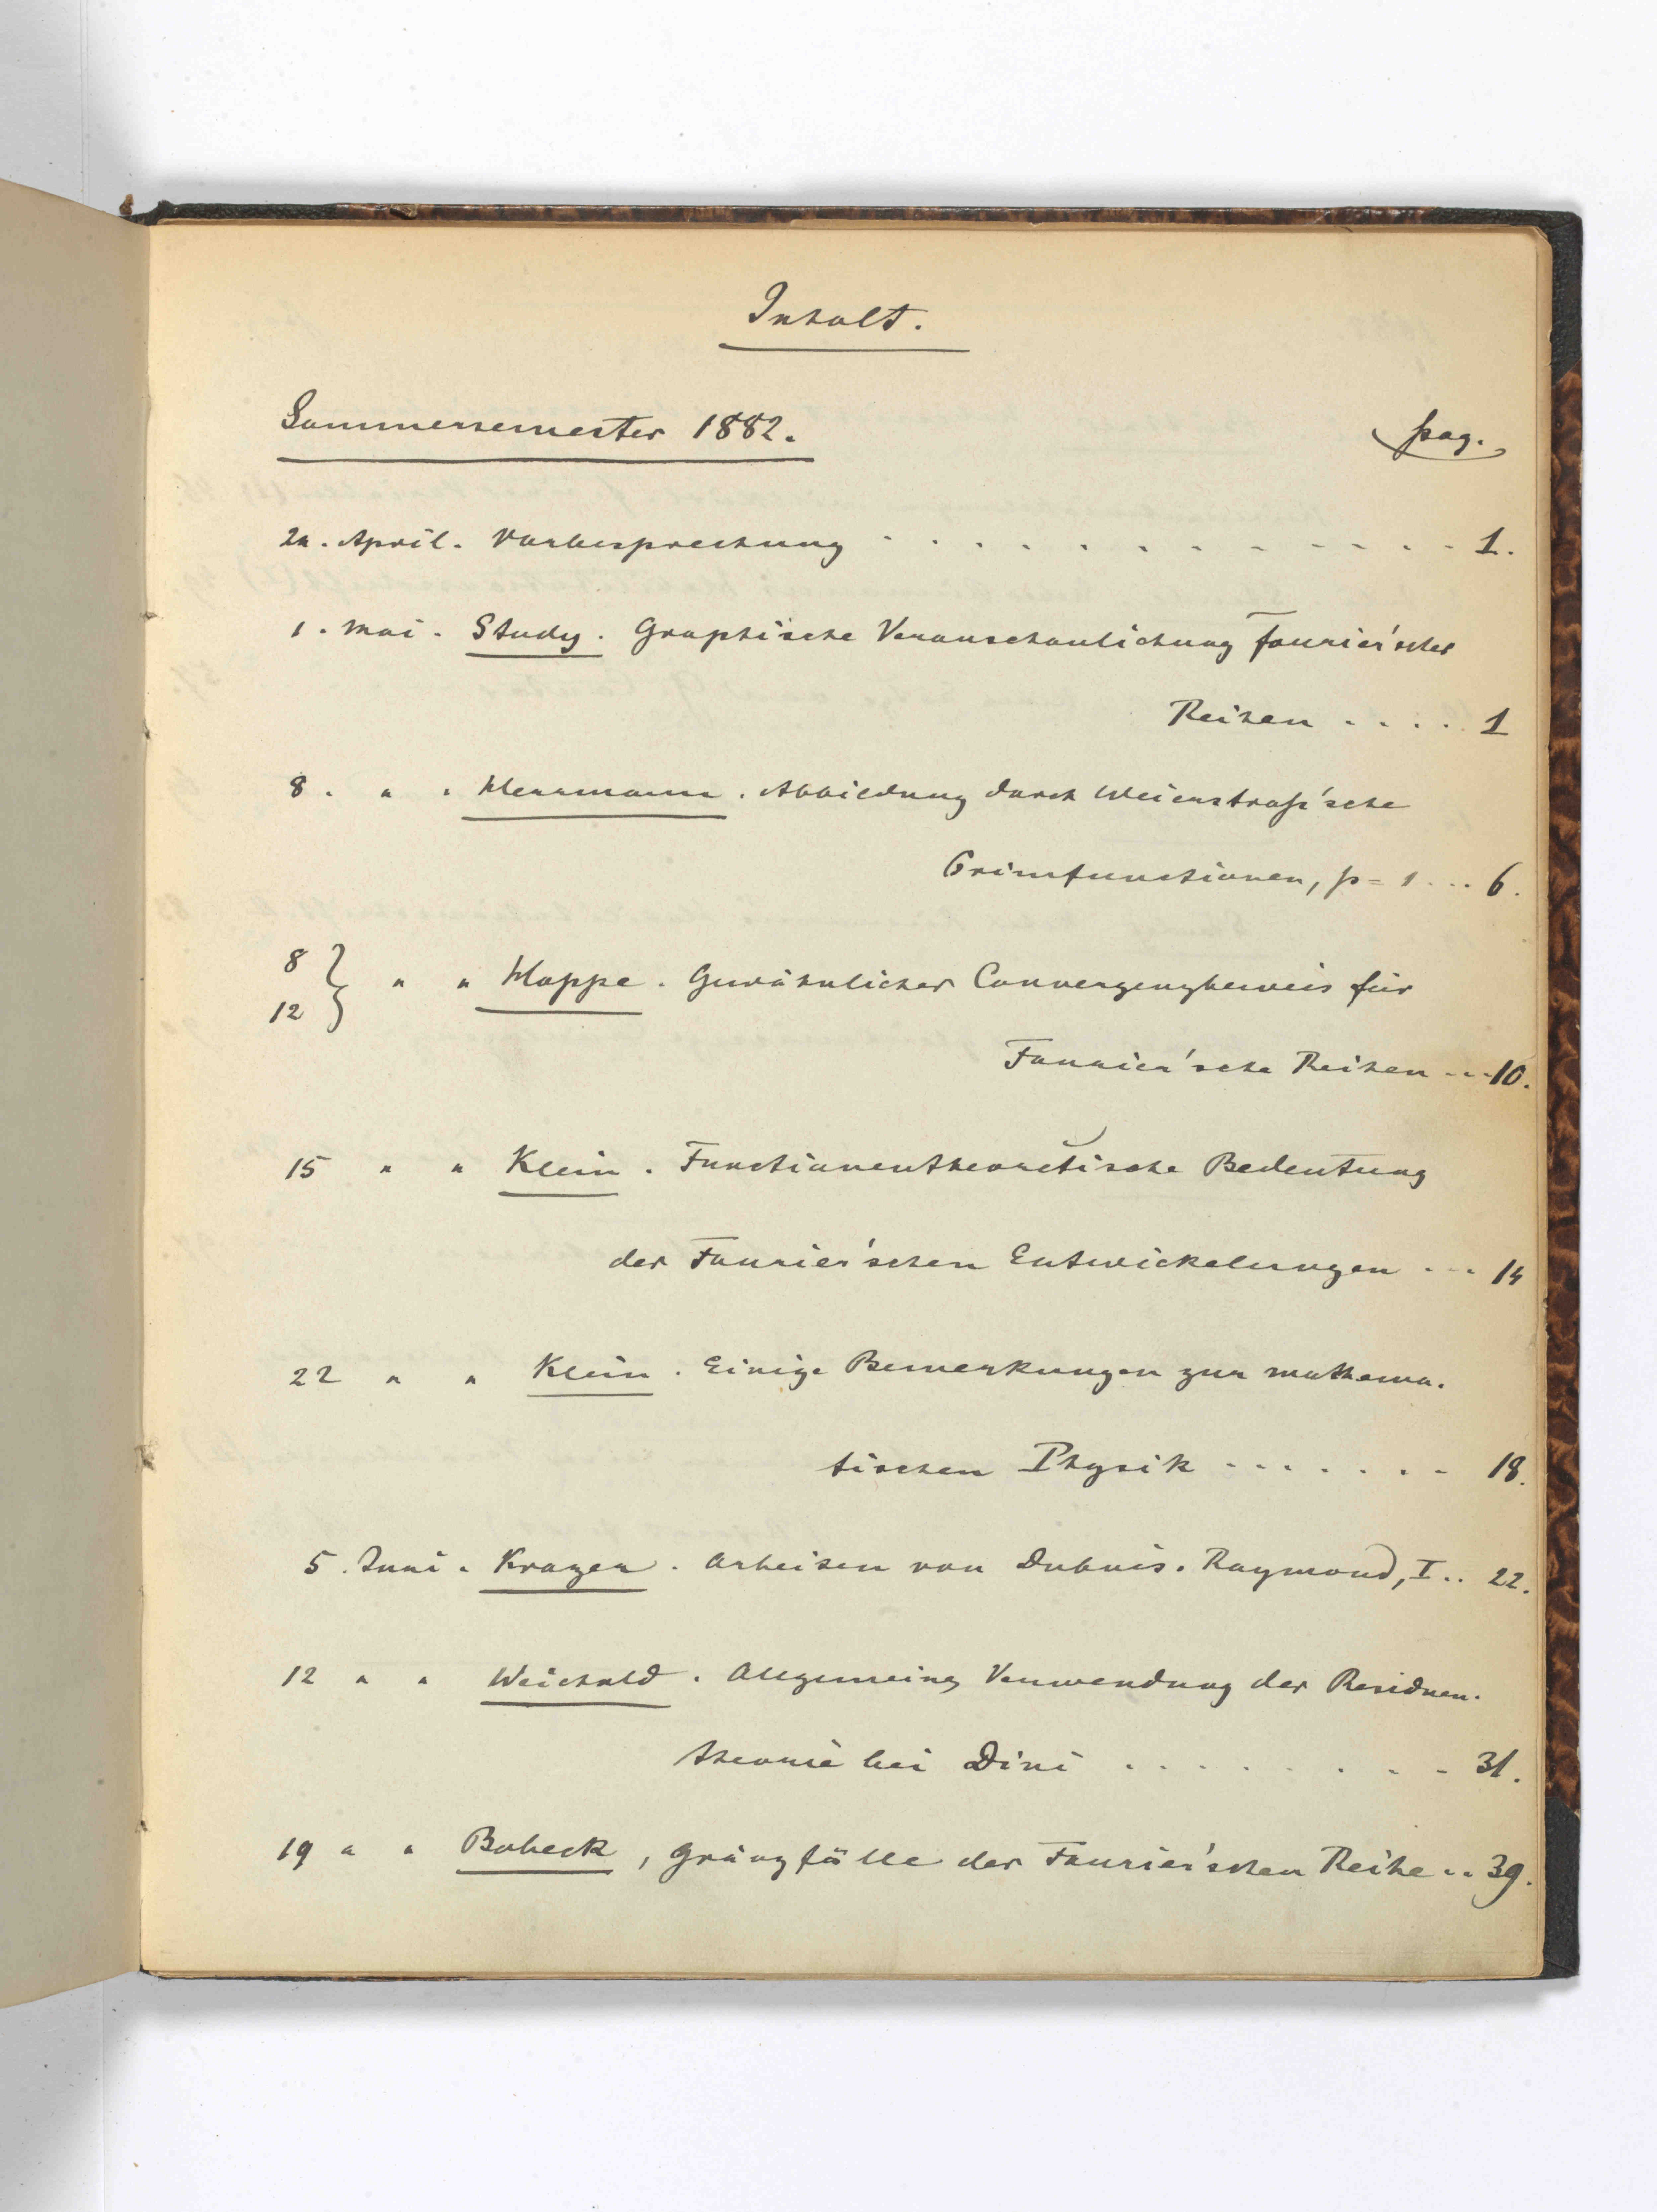 Inhalt.
Sommersemester 1882.
pag.
24. April. Vorbesprechung . . . . . . . . . . . 1.
1. Mai. Study. Graphische Veranschaulichung Fourier'scher
Reihen . . . . 1
8. " . Herrmann. Abbildung durch Weierstraß'sche
Primfunctionen, p = 1 . . . 6.
8 } " " Hoppe. Gewöhnlicher Convergenzbeweis für
12
Fourier'sche Reihen . . . 10.
15 " " Klein. Functionentheoretische Bedeutung
der Fourier'schen Entwickelungen . . . 14
22 " " Klein. Einige Bemerkungen zur mathema-
tischen Physik . . . . . . . 18.
5. Juni. Krazer. Arbeiten von Dubois-Raymond, I . . 22.
12 " " Weichold. Allgemeine Verwendung der Residuen-
theorie bei Dini . . . . . . . . 31.
19 " " Bobeck, Gränzfälle der Fourier'schen Reihe . . 39.